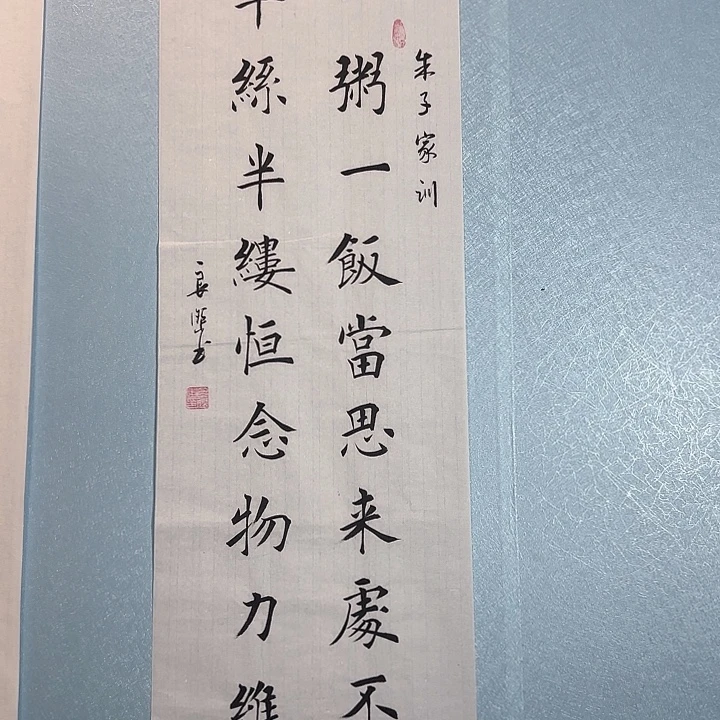 朱子家训
粥一飯當思来處不
絲半縷恒念物力維
良书